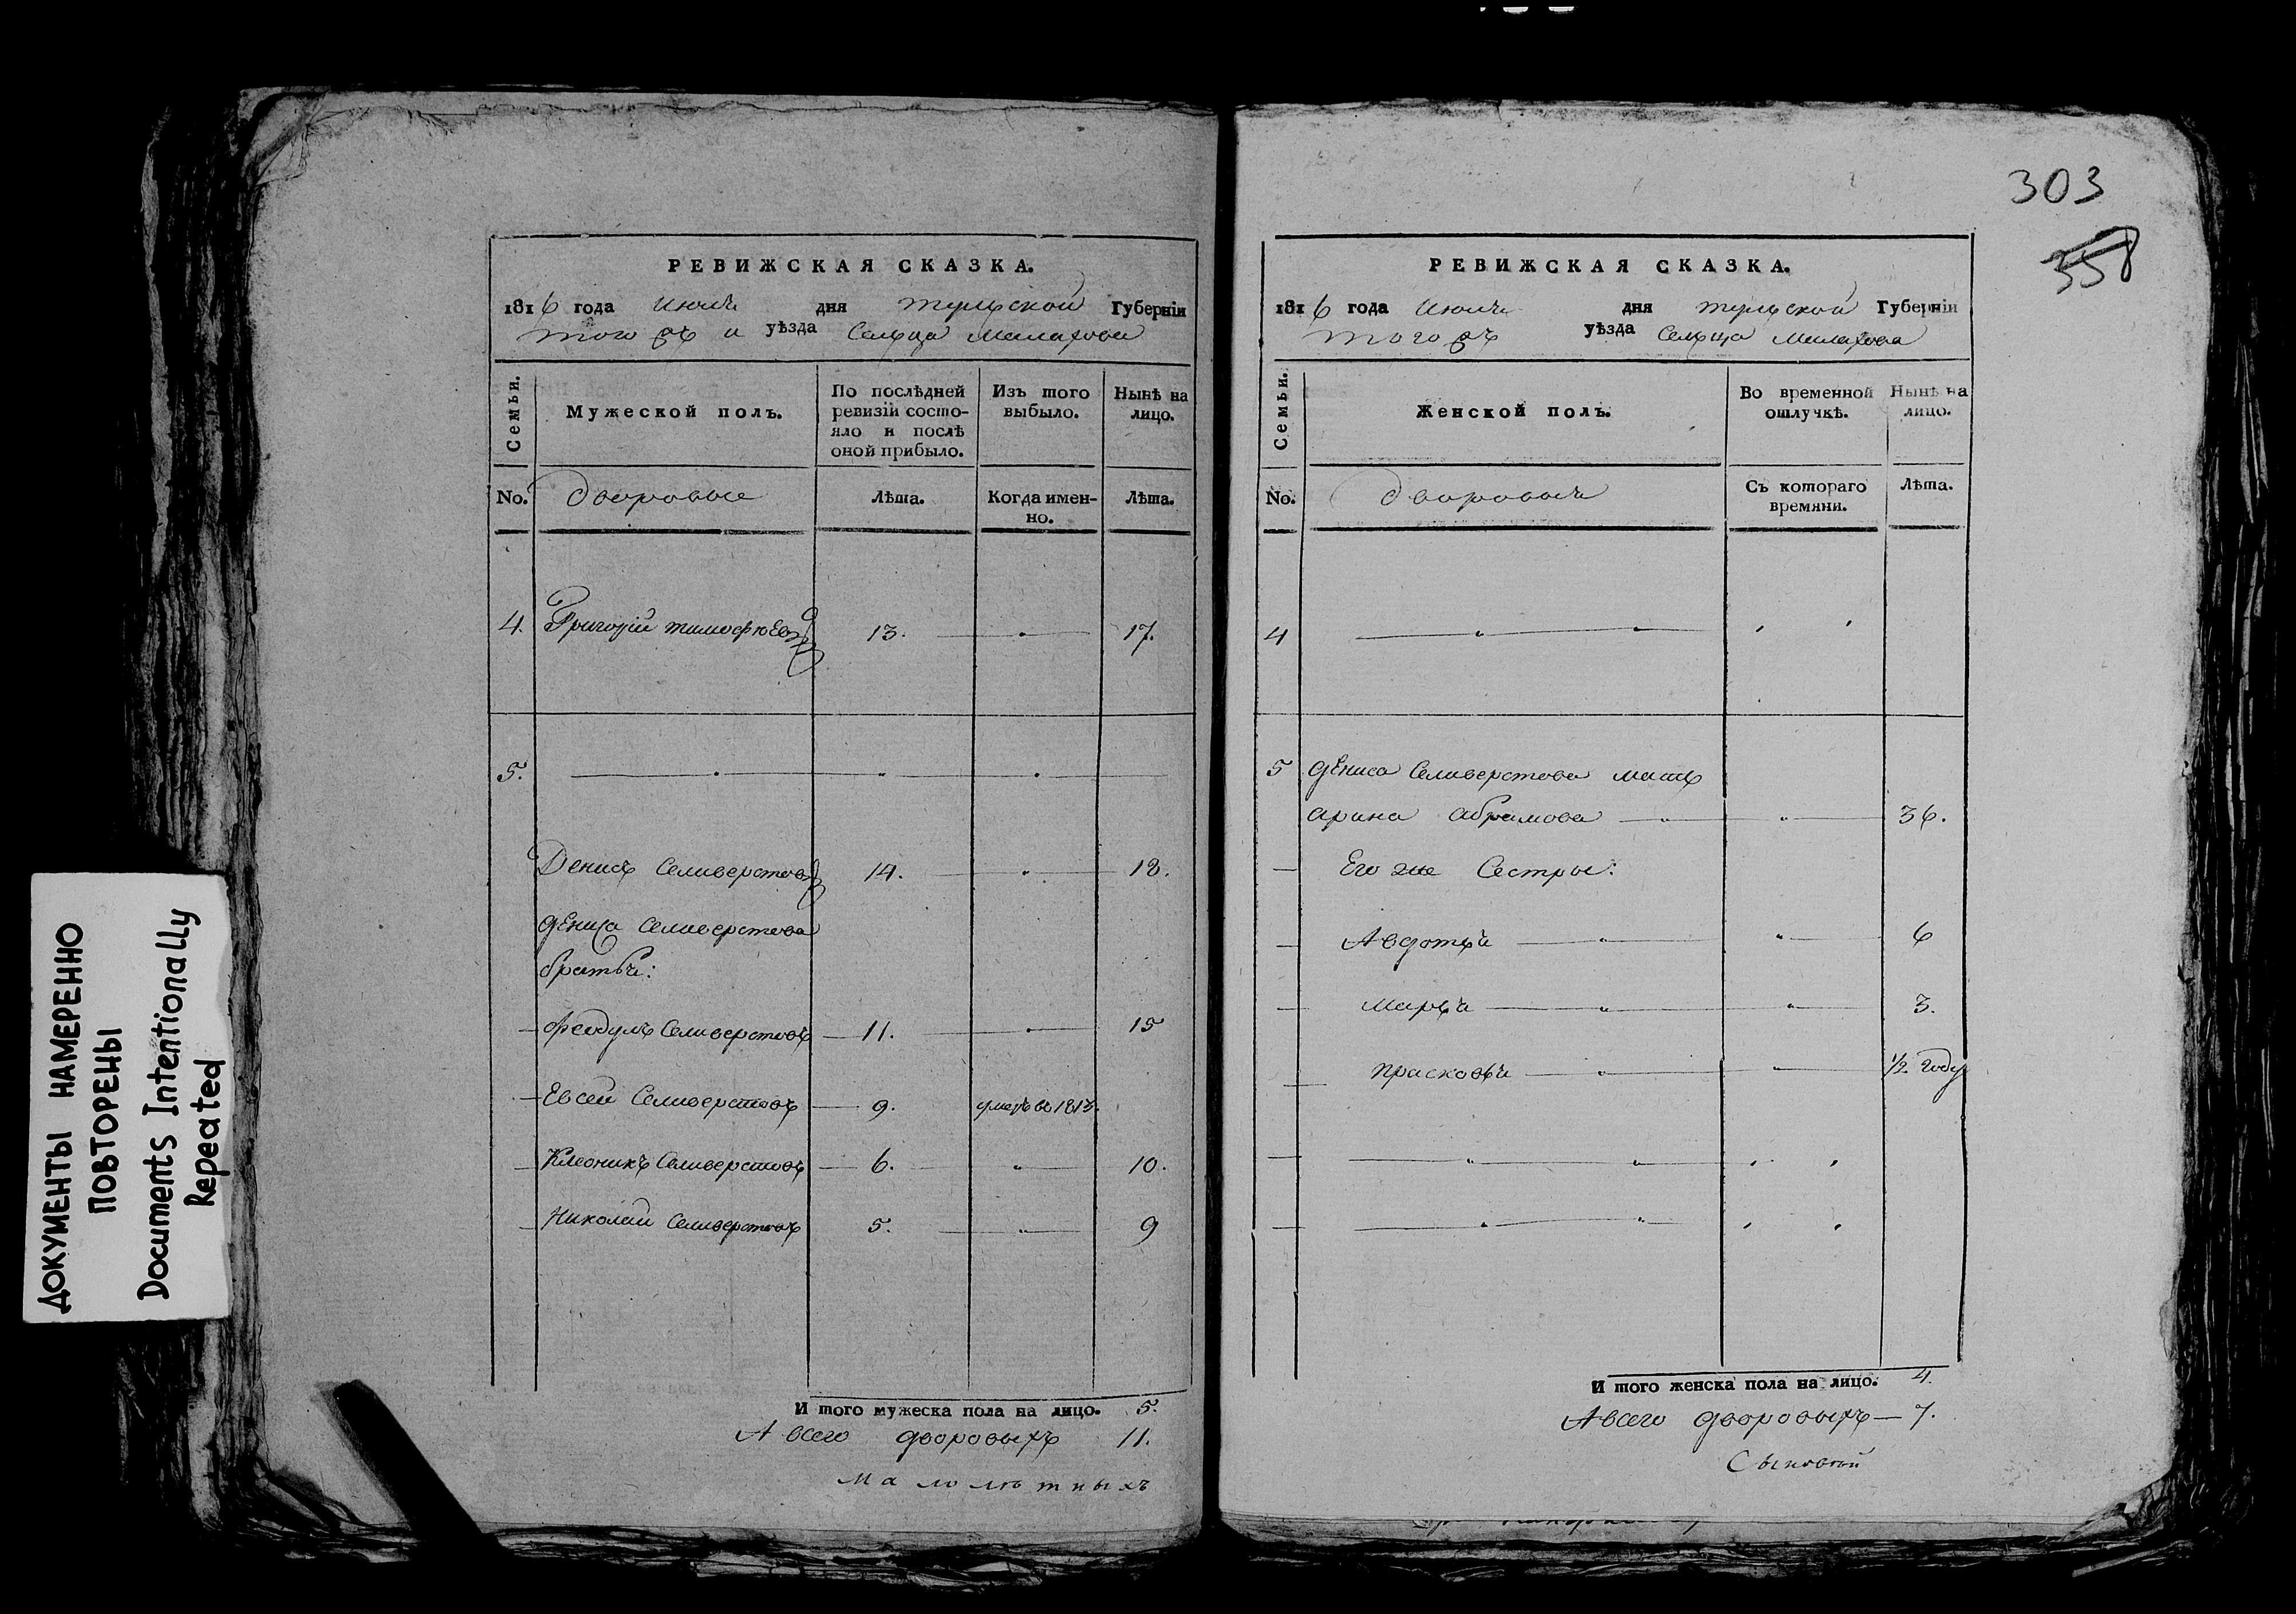 ДОКУМЕНТЫ НАМЕРЕННО
ПОВТОРЕНЫ
Documents Intentionally
Repeated
РЕВИЖСКАЯ СКАЗКА.
1816 года Июля дня Тульской Губерніи
тогожъ и уѣзда Сельца Малахова
Семьи.
Мужеской полъ.
По послѣдней
ревизіи состо-
яло и послѣ
оной прибыло.
Изъ того
выбыло.
Нынѣ на
лицо.
No.
дворовые
Лѣта.
Когда имен-
но.
Лѣта.
4. Григорій тимофѣевъ 13. 17.
5.
Денисъ Селиверстовъ 14. 18.
дениса Селиверстова
братья:
Федулъ Селиверстовъ 11. 15
Евсей Селиверстовъ 9. умеръ въ 1813.
Клеоникъ Селиверстовъ 6. 10.
Николай Селиверстовъ 5. 9
И того мужеска пола на лицо. 5.
А всего дворовыхъ 11.
малолѣтныхъ
303
358
РЕВИЖСКАЯ СКАЗКА.
1816 года Июля дня Тульской Губерніи
тогожъ уѣзда Сельца Малахова
Семьи.
Женской полъ.
Во временной
отлучкѣ.
Нынѣ на
лицо.
No.
дворовыя
Съ котораго
времяни.
Лѣта.
4
5 дениса Селиверстова мать
арина абрамова 36.
Его же Сестры:
Авдотья 6
марья 3.
прасковья 1/2 году
И того женска пола на лицо. 4.
А всего дворовыхъ — 7.
Сыновей